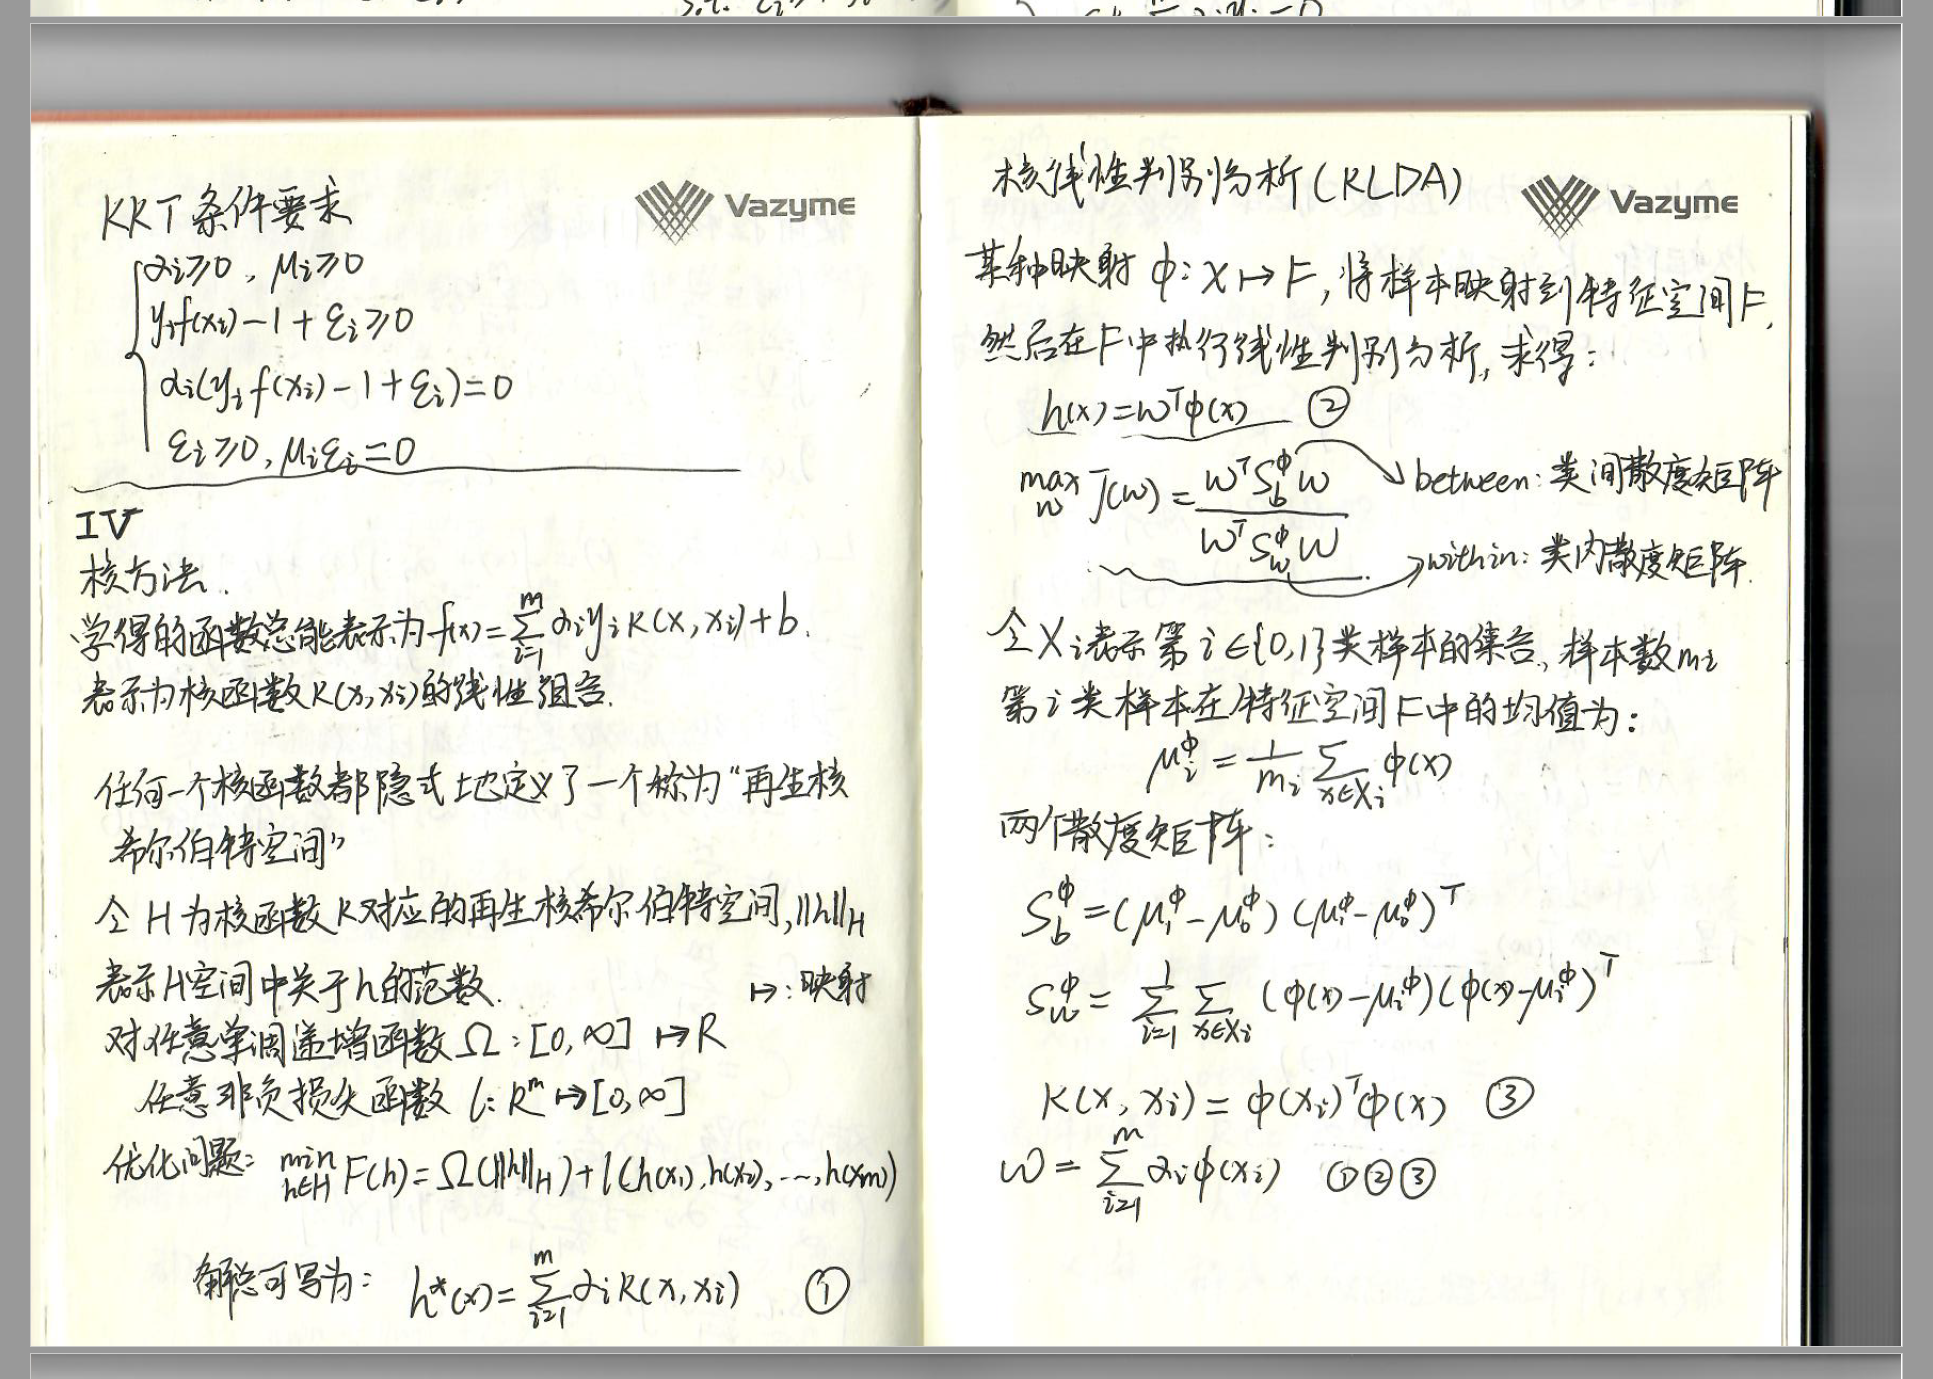 KKT条件要求
Vazyme
αi≥0, μi≥0
yif(xi)-1+εi≥0
αi(yif(xi)-1+εi)=0
εi≥0, μiεi=0
IV
核方法.
学得的函数总能表示为f(x)=∑_{i=1}^{m} αiyiK(x,xi)+b.
表示为核函数K(x,xi)的线性组合.
任何一个核函数都隐式地定义了一个称为“再生核
希尔伯特空间”
令H为核函数K对应的再生核希尔伯特空间,||h||_H
表示H空间中关于h的范数. ↦:映射
对任意单调递增函数Ω:[0,∞] ↦R
任意非负损失函数 l:R^m↦[0,∞]
优化问题: min_{h∈H} F(h)=Ω(||h||_H)+l(h(x1),h(x2),...,h(xm))
解总可写为: h*(x)=∑_{i=1}^{m} αiK(x,xi) ①
核线性判别分析(KLDA)
Vazyme
某种映射 φ:χ↦F,将样本映射到特征空间F,
然后在F中执行线性判别分析,求得:
h(x)=w^Tφ(x) ②
max_w J(w)=\frac{w^T S_b^φ w}{w^T S_w^φ w}
between:类间散度矩阵
within:类内散度矩阵.
令Xi表示第i∈{0,1}类样本的集合,样本数mi
第i类样本在特征空间F中的均值为:
μ_i^φ=\frac{1}{mi}∑_{x∈Xi}φ(x)
两个散度矩阵:
S_b^φ=(μ_1^φ-μ_0^φ)(μ_1^φ-μ_0^φ)^T
S_w^φ=∑_{i=1}^{1}∑_{x∈Xi}(φ(x)-μ_i^φ)(φ(x)-μ_i^φ)^T
K(x,xi)=φ(xi)^Tφ(x) ③
w=∑_{i=1}^{m} αiφ(xi) ①②③